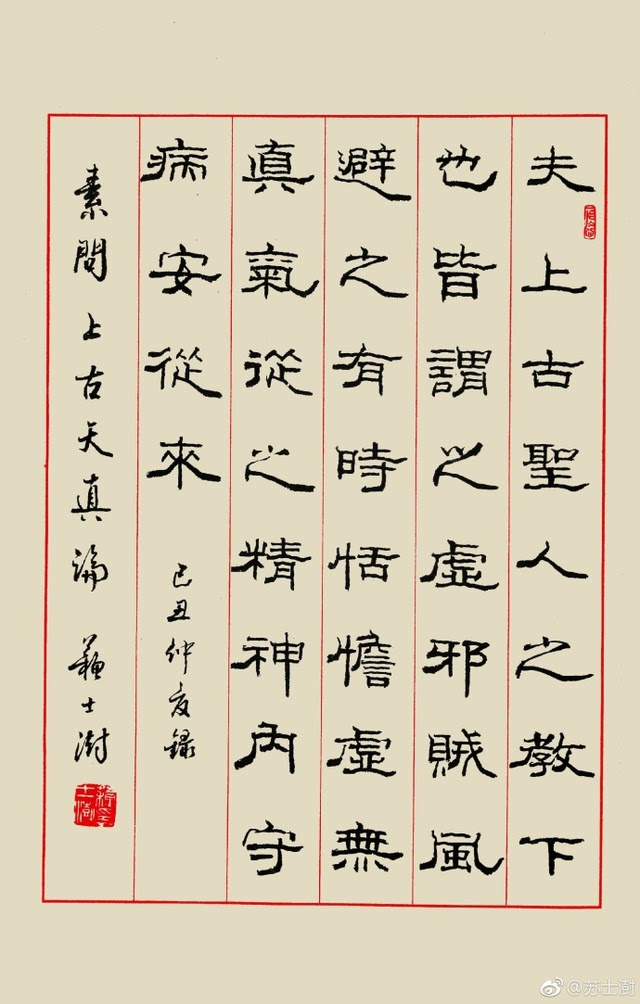 夫上古聖人之教下
也皆謂之虛邪賊風
避之有時恬憺虛無
真氣從之精神內守
病安從來
己丑仲夏錄
素問上古天真論 蘇士澍
@苏士澍